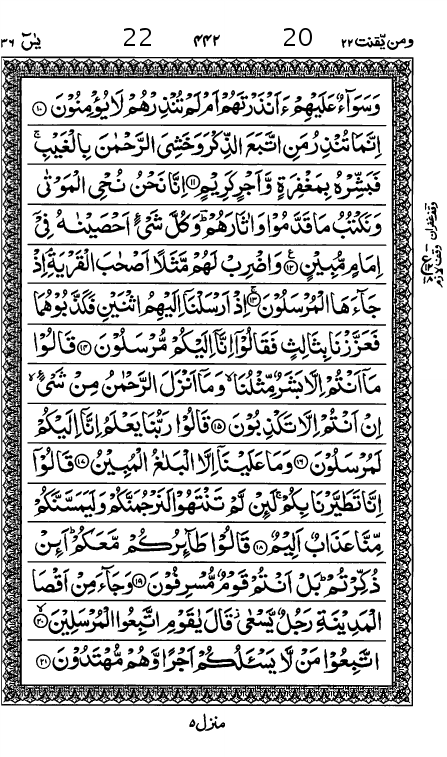 ومن يقنت ٢٢ 20 ٤٤٢ 22 يٰسٓ ٣٦
وَسَوَآءٌ عَلَيْهِمْ ءَاَنْذَرْتَهُمْ اَمْ لَمْ تُنْذِرْهُمْ لَا يُؤْمِنُوْنَ ۝١٠
اِنَّمَا تُنْذِرُ مَنِ اتَّبَعَ الذِّكْرَ وَخَشِىَ الرَّحْمٰنَ بِالْغَيْبِ ۚ
فَبَشِّرْهُ بِمَغْفِرَةٍ وَّاَجْرٍ كَرِيْمٍ ۝١١ اِنَّا نَحْنُ نُحْىِ الْمَوْتٰى
وَنَكْتُبُ مَا قَدَّمُوْا وَاٰثَارَهُمْ ؕ وَكُلَّ شَىْءٍ اَحْصَيْنٰهُ فِىْٓ
اِمَامٍ مُّبِيْنٍ ۝١٢ وَاضْرِبْ لَهُمْ مَّثَلًا اَصْحٰبَ الْقَرْيَةِ ۘ اِذْ
جَآءَهَا الْمُرْسَلُوْنَ ۝١٣ اِذْ اَرْسَلْنَاۤ اِلَيْهِمُ اثْنَيْنِ فَكَذَّبُوْهُمَا
فَعَزَّزْنَا بِثَالِثٍ فَقَالُوْۤا اِنَّاۤ اِلَيْكُمْ مُّرْسَلُوْنَ ۝١٤ قَالُوْا
مَاۤ اَنْتُمْ اِلَّا بَشَرٌ مِّثْلُنَا ۙ وَمَاۤ اَنْزَلَ الرَّحْمٰنُ مِنْ شَىْءٍ ۙ
اِنْ اَنْتُمْ اِلَّا تَكْذِبُوْنَ ۝١٥ قَالُوْا رَبُّنَا يَعْلَمُ اِنَّاۤ اِلَيْكُمْ
لَمُرْسَلُوْنَ ۝١٦ وَمَا عَلَيْنَاۤ اِلَّا الْبَلٰغُ الْمُبِيْنُ ۝١٧ قَالُوْۤا
اِنَّا تَطَيَّرْنَا بِكُمْ ۚ لَئِنْ لَّمْ تَنْتَهُوْا لَنَرْجُمَنَّكُمْ وَلَيَمَسَّنَّكُمْ
مِّنَّا عَذَابٌ اَلِيْمٌ ۝١٨ قَالُوْا طَآئِرُكُمْ مَّعَكُمْ ؕ اَئِنْ
ذُكِّرْتُمْ ؕ بَلْ اَنْتُمْ قَوْمٌ مُّسْرِفُوْنَ ۝١٩ وَجَآءَ مِنْ اَقْصَا
الْمَدِيْنَةِ رَجُلٌ يَّسْعٰى ؗ قَالَ يٰقَوْمِ اتَّبِعُوا الْمُرْسَلِيْنَ ۝٢٠
اتَّبِعُوْا مَنْ لَّا يَسْـَٔلُكُمْ اَجْرًا وَّهُمْ مُّهْتَدُوْنَ ۝٢١
وقف غفران
وقف لازم
منزل ٥